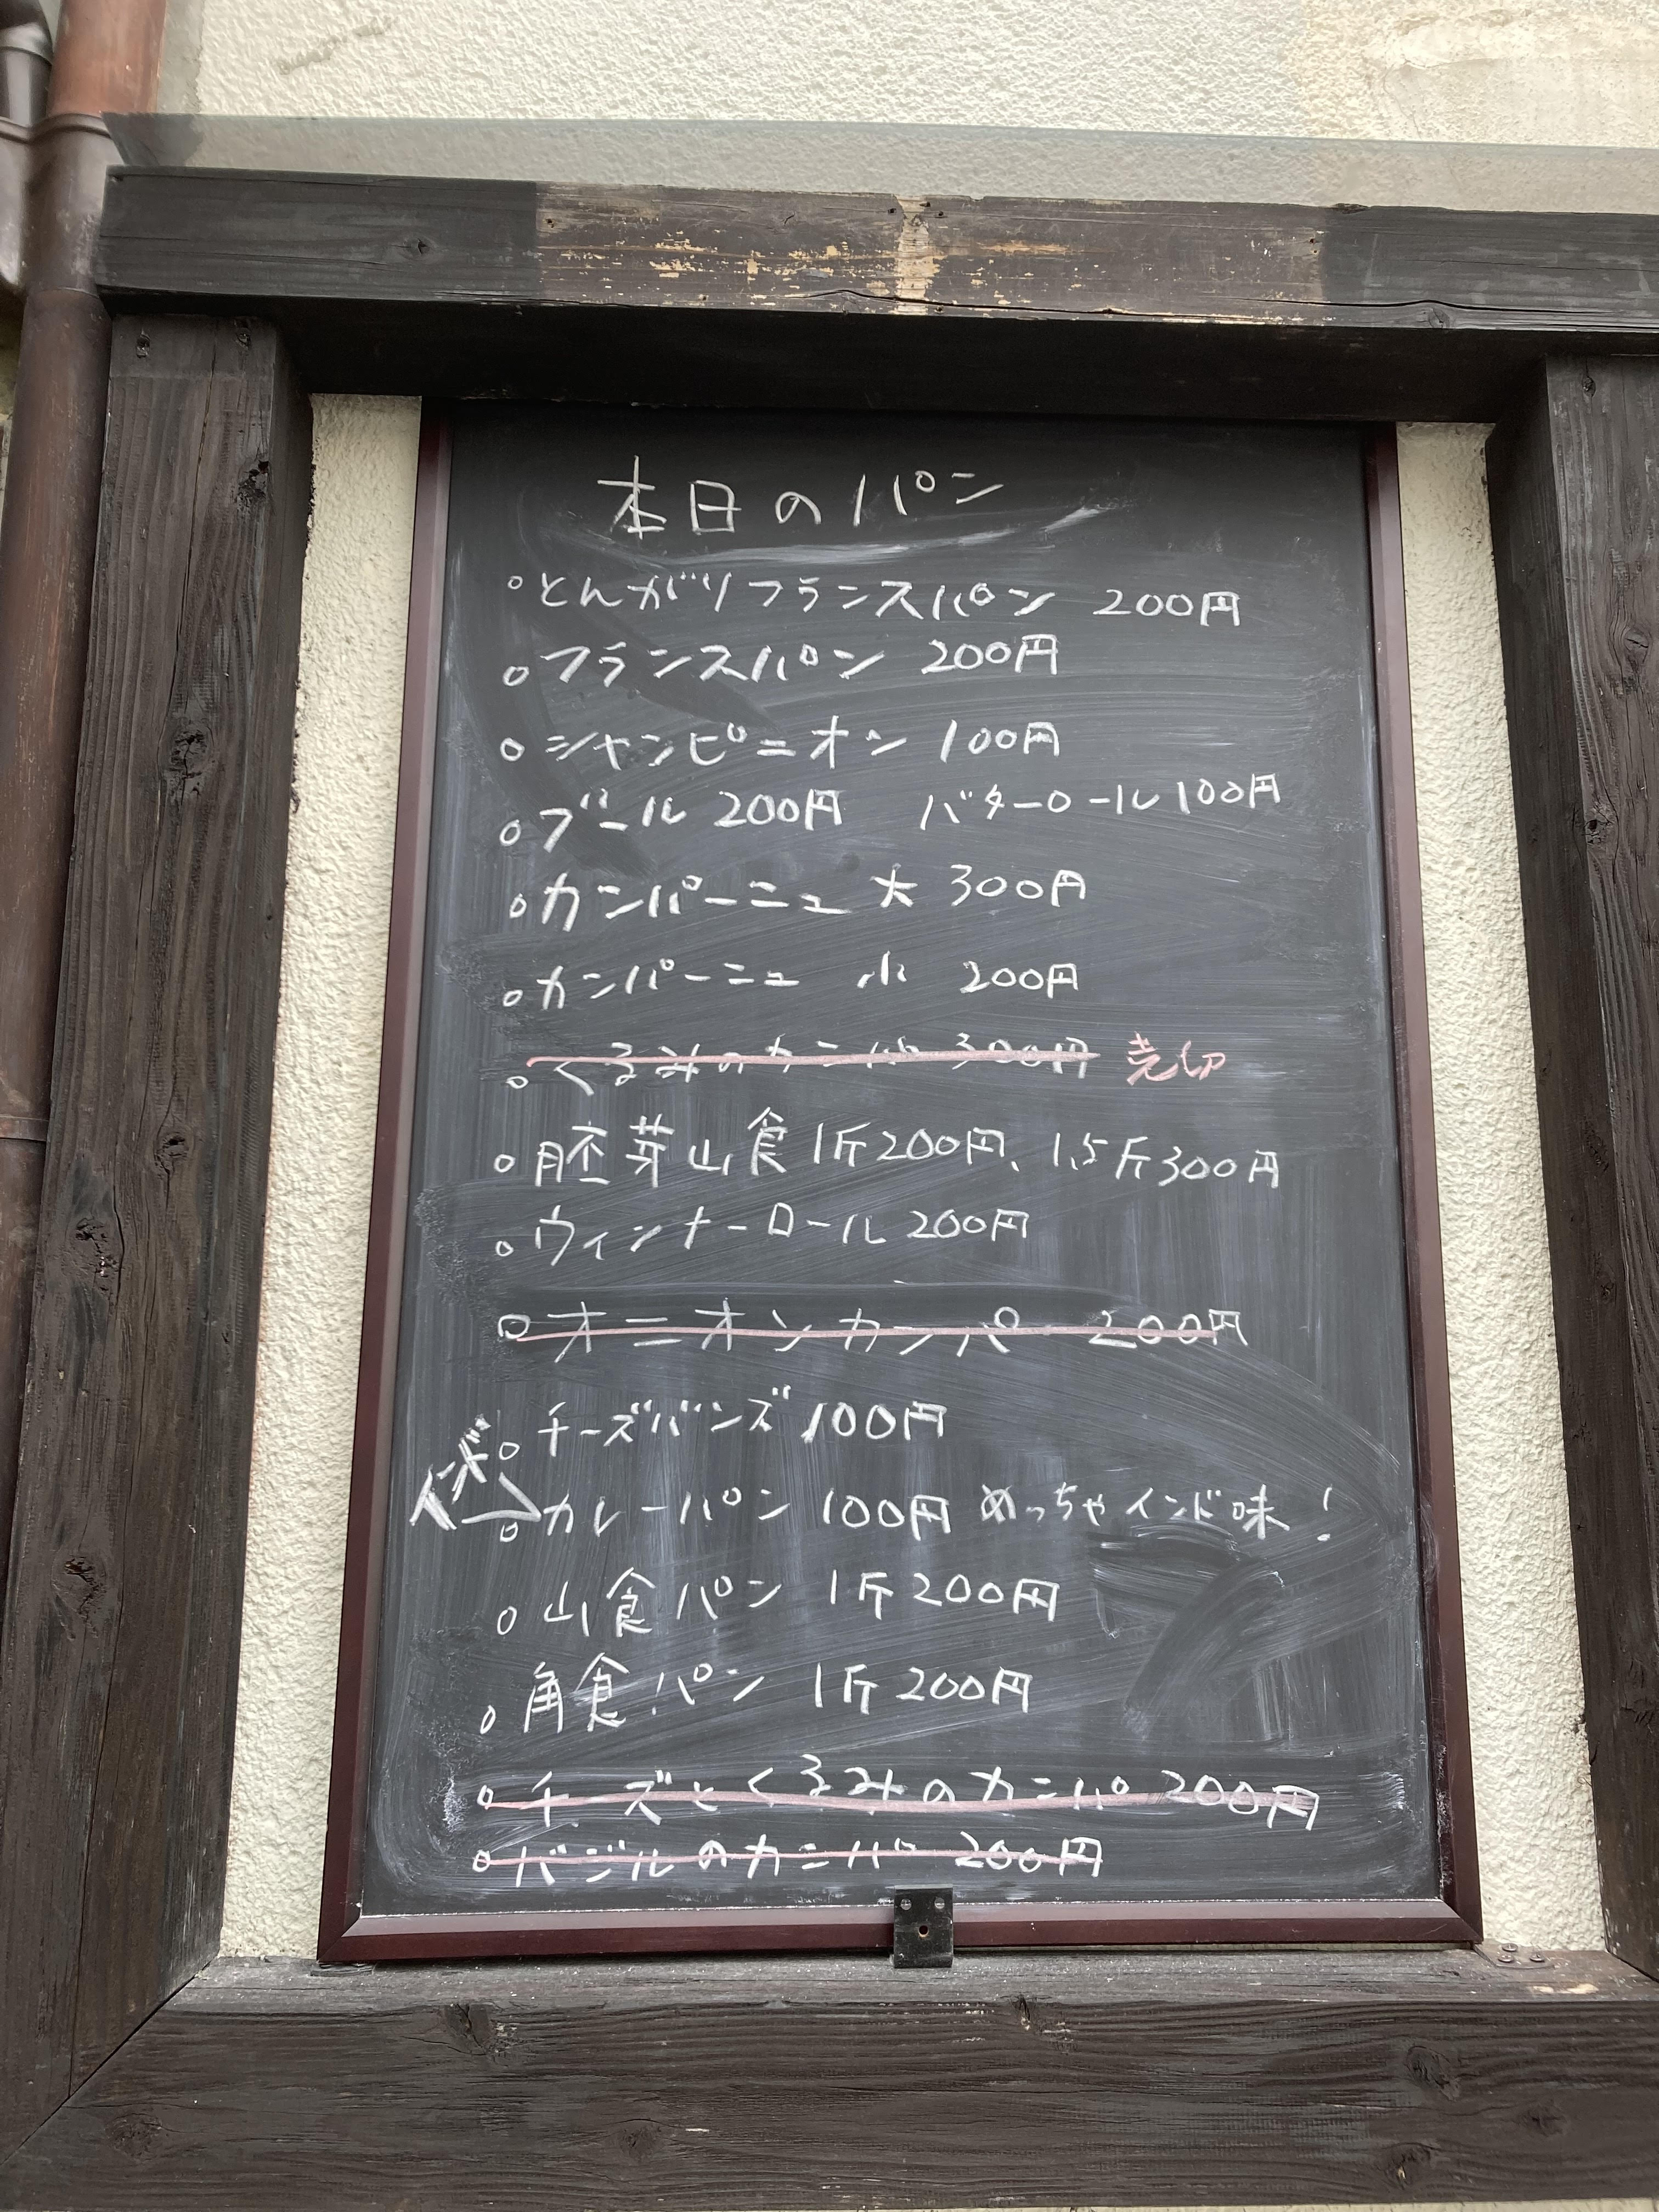 本日のパン
○とんがりフランスパン 200円
○フランスパン 200円
○シャンピニオン 100円
○ブール 200円 バターロール100円
○カンパーニュ 大 300円
○カンパーニュ 小 200円
○くるみのカンパ 300円 売切
○胚芽山食 1斤200円、1.5斤300円
○ウィンナーロール 200円
○オニオンカンパー 200円
○チーズバンズ 100円
○カレーパン 100円 めっちゃインド味!
○山食パン 1斤200円
○角食パン 1斤200円
○チーズとくるみのカンパ 200円
○バジルのカンパ 200円